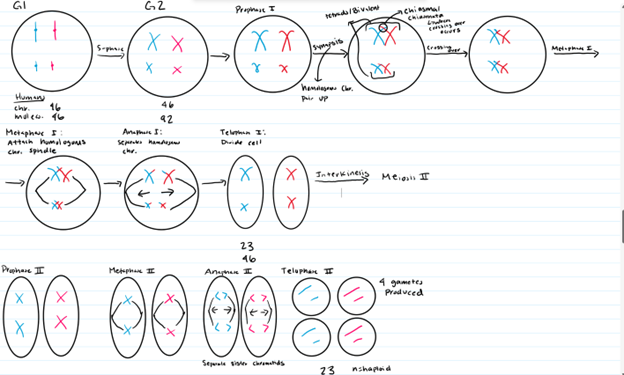 G1
G2
Prophase I
tetrads/Bivalent
chiasma/
chiasmata
Crossing over
occurs
S-phase
Synapsis
Crossing
over
Metaphase I
homologous Chr.
pair up
Human
chr. 46
molec. 46
46
92
Metaphase I:
Attach homologous
chr. spindle
Anaphase I:
Separate homologous
chr.
Telophase I:
Divide cell
Interkinesis
Meiosis II
23
46
Prophase II
Metaphase II
Anaphase II
Telophase II
4 gametes
Produced
Separate sister chromatids
23 n=haploid